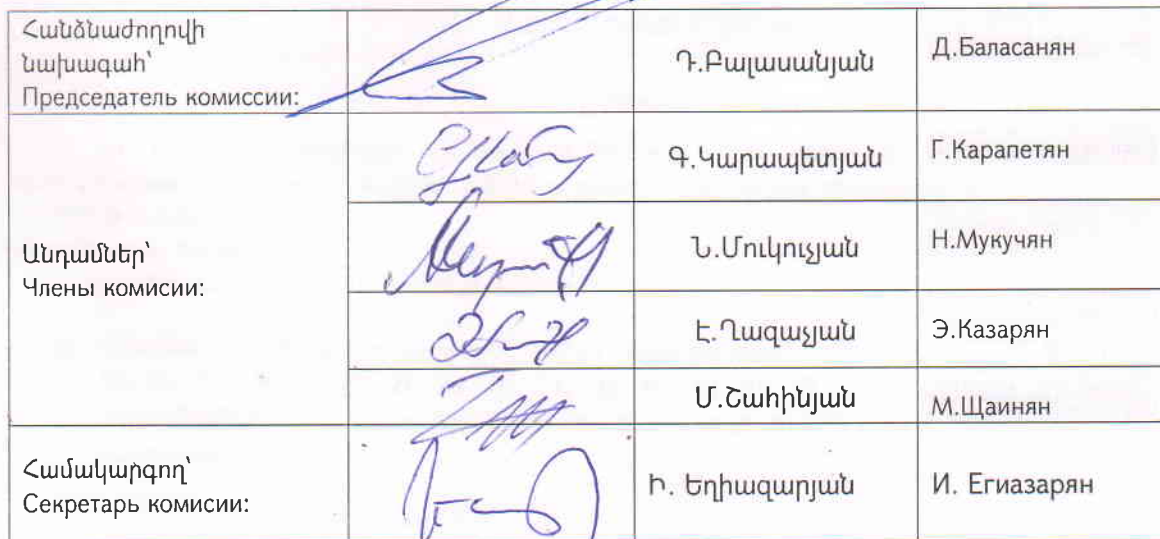 Հանձնաժողովի
նախագահ՝
Председатель комиссии:
Դ.Բալասանյան
Д.Баласанян
Գ.Կարապետյան
Г.Карапетян
Անդամներ՝
Члены комисии:
Ն.Մուկուչյան
Н.Мукучян
Է.Ղազաչյան
Э.Казарян
Մ.Շահինյան
М.Щаинян
Համակարգող՝
Секретарь комисии:
Ի. Եղիազարյան
И. Егиазарян